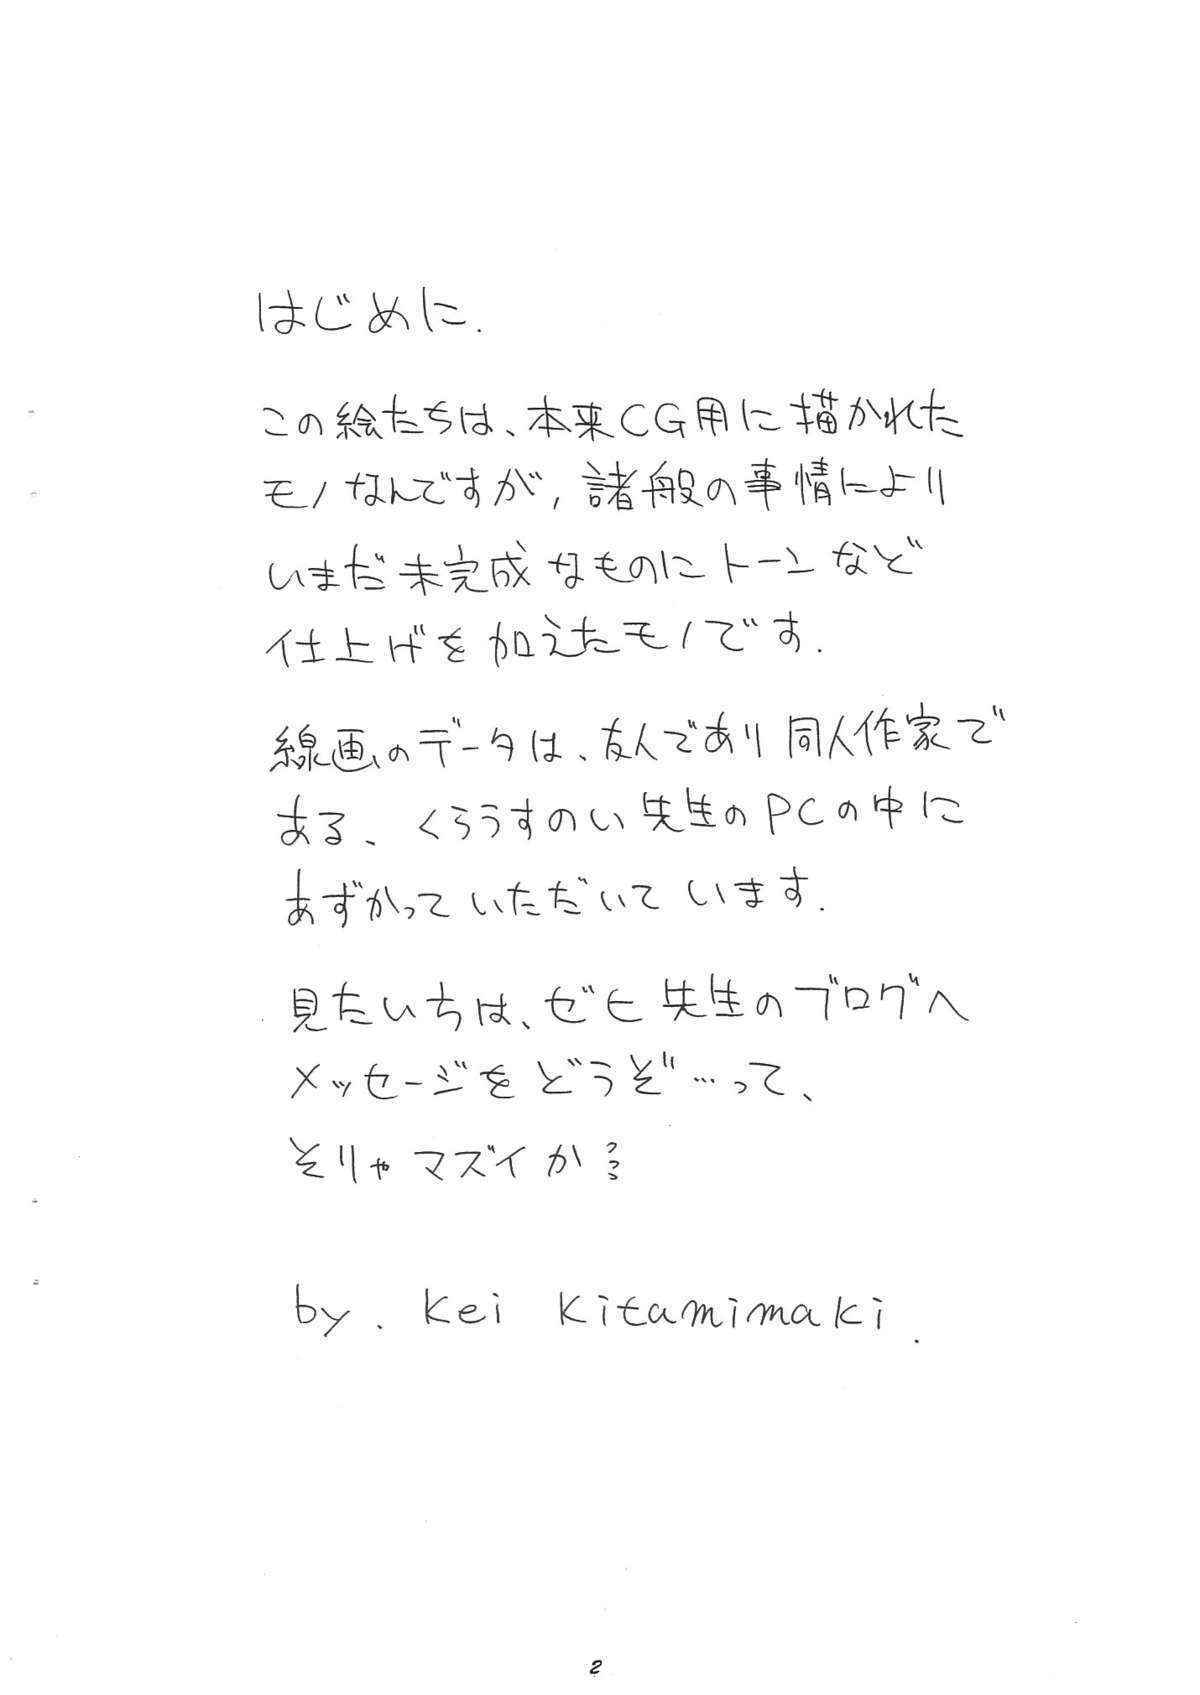 はじめに.
この絵たちは、本来CG用に描かれた
モノなんですが、諸般の事情により
いまだ未完成なものにトーンなど
仕上げを加えたモノです.
線画のデータは、友人であり同人作家で
ある、くろうすのい先生のPCの中に
あずかっていただいています.
見たいちは、ゼヒ先生のブログへ
メッセージをどうぞ…って、
そりゃマズイか
by. Kei Kitamimaki.
2